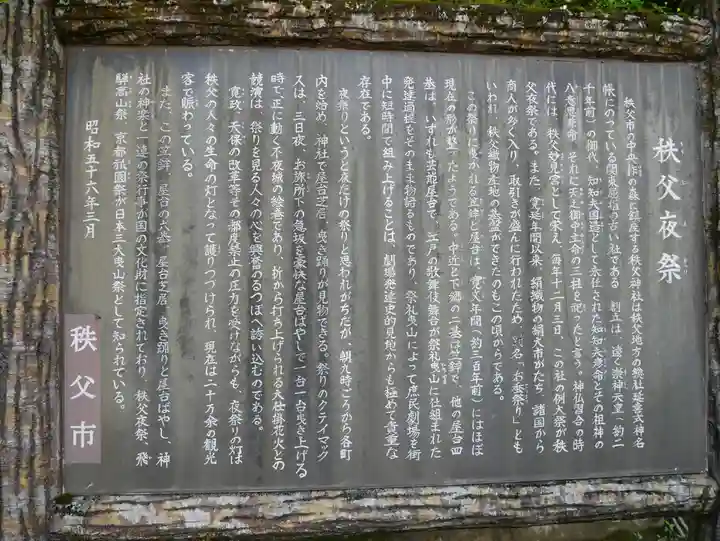 秩父夜祭
秩父市の中央柞の森に鎮座する秩父神社は秩父地方の総社延喜式神名
帳にのっている関東屈指の古い社である。創立は、遠く崇神天皇（約二
千年前）の御代、知知夫国造として永任された知知夫彦命とその祖神の
八意思兼命、それに天之御中主神の三柱を祀ったと言う。神仏習合の時
代には、秩父妙見宮として栄え、毎年十二月三日、この社の例大祭が秩
父夜祭である。また、寛延年間以来、絹織物の絹大市がたち、諸国から
商人が多く入り、取引きが盛んに行われたため、別名「お蚕祭り」とも
いわれ、秩父織物産地の基盤ができたのもこの頃からである。
この祭りに曳かれる笠鉾と屋台は、寛文年間（約三百年前）にはほぼ
現在の形が整ったようである。中近と下郷の二基は笠鉾で、他の屋台四
基は、いずれも芸能屋台で、江戸の歌舞伎舞台が祭礼曳山には組まれた
発達過程をそのまま物語るものであり、祭礼曳山によって庶民劇場を街
中に短時間で組み上げることは、劇場発達史的見地からも極めて貴重な
存在である。
夜祭りというと夜だけの祭りと思われがちだが、朝九時ごろから各町
内を始め、神社で屋台芝居、曳き踊りが見物できる。祭りのクライマッ
クスは、三日夜、お旅所下の急坂を豪快な屋台ばやしで一台一台曳き上げる
時で、正に動く不夜城の絵巻であり、折から打ち上げられる大仕掛花火との
競演は、祭りを見る人々の心を興奮のるつぼへ誘い込むのである。
寛政、天保の改革等その都度禁止の圧力を受けながらも、夜祭りの灯は
秩父の人々の生命の灯となって護りつづけられ、現在は二十万余の観光
客で賑わっている。
また、この笠鉾、屋台の六基、屋台芝居、曳き踊りと屋台ばやし、神
社の神楽と一連の祭行事が国の文化財に指定されており、秩父夜祭、飛
騨高山祭、京都祇園祭が日本三大曳山祭として知られている。
昭和五十六年三月
秩父市